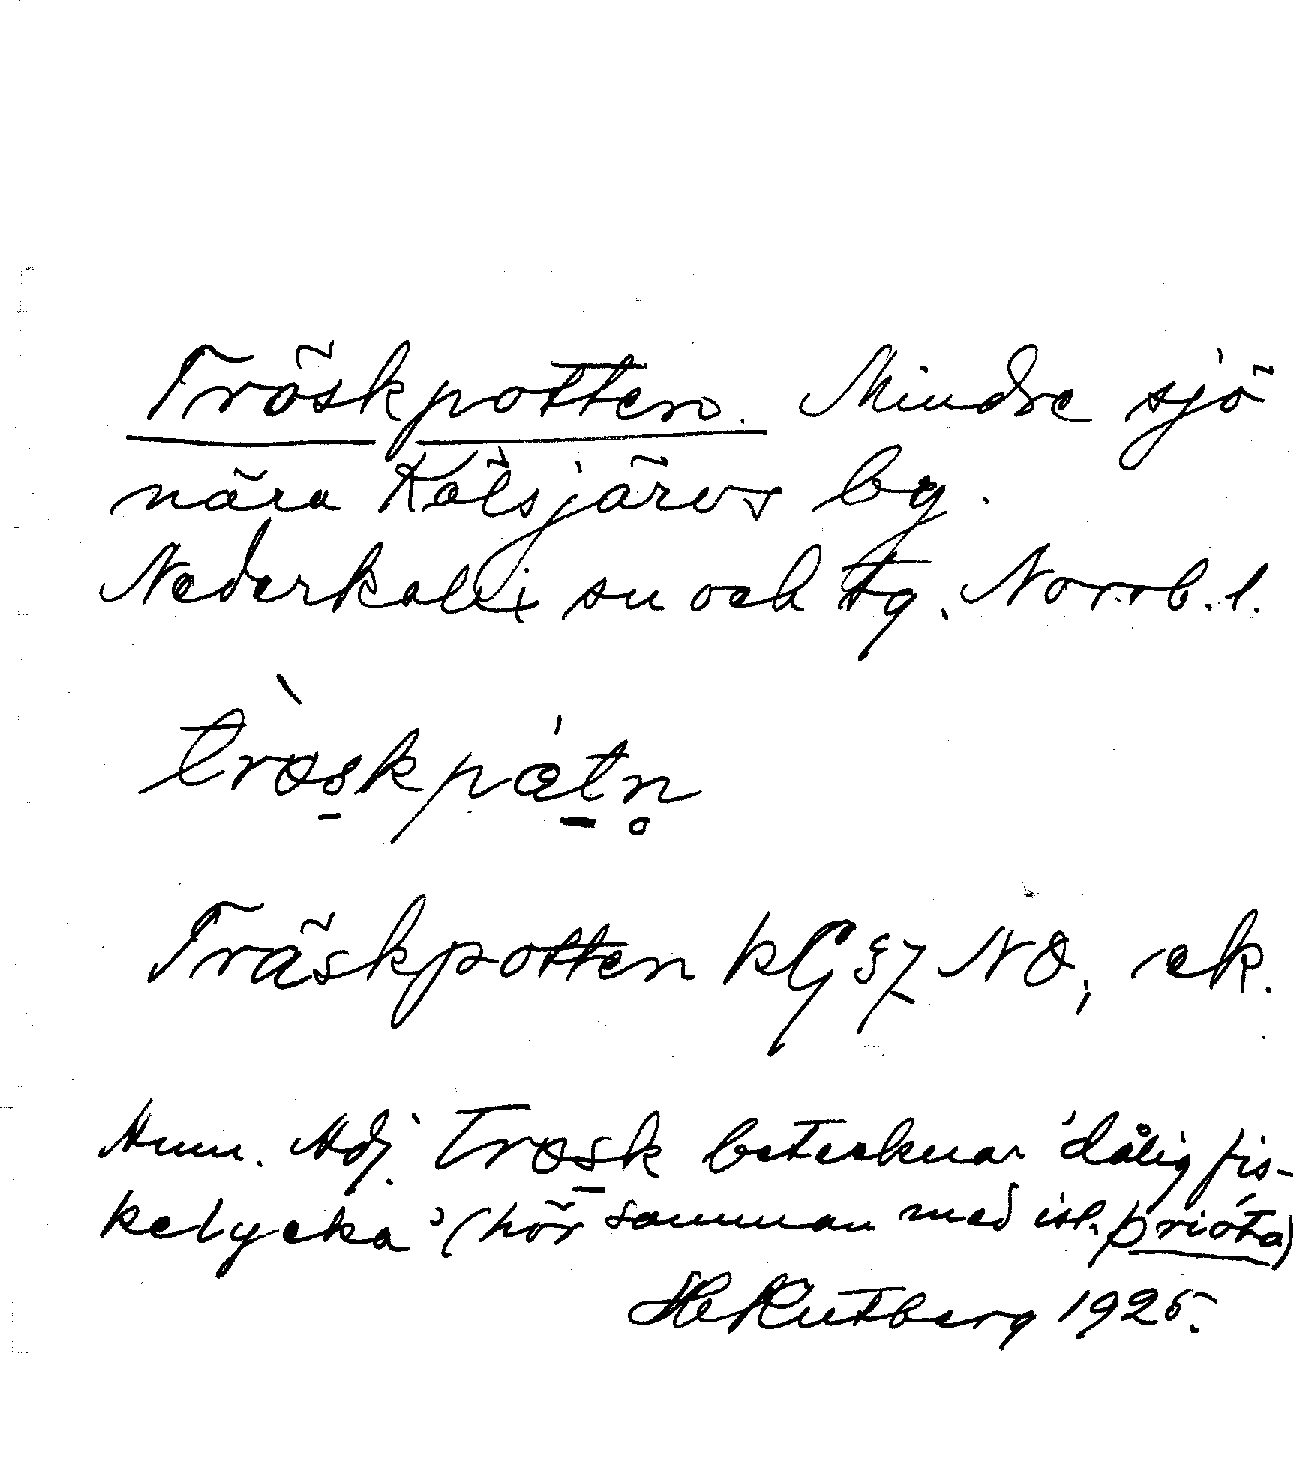 Tröskpotten. Mindre sjö
nära Kälsjärvs by.
Nederkalix sn och tg. Norrb. l.
trøskpòtn̥
Träskpotten kG 57 NO, ek.
Anm. Adj. trøsk betecknar 'dålig fis-
kelycka' (hör samman med isl. þrióta)
HeRutberg 1925.